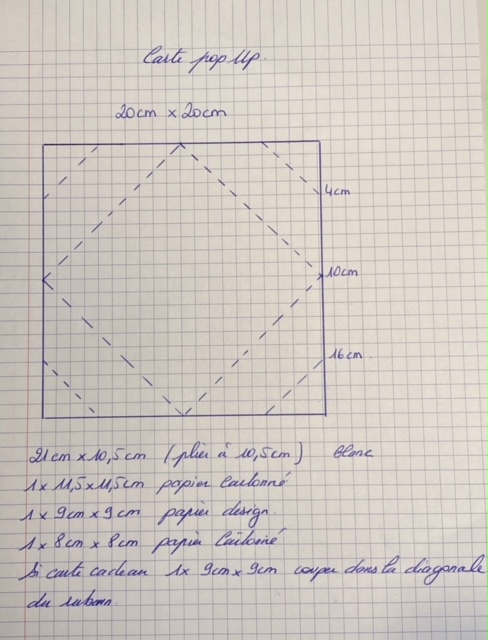 Carte pop Up.
20cm x 20cm
4cm
10cm
16cm
21cm x 10,5cm (plier à 10,5cm) Blanc
1x 11,5x11,5cm papier Cartonné
1x 9cm x 9cm papier design.
1x 8cm x 8cm papier Cartonné
Si carte cadeau 1x 9cm x 9cm couper dans la diagonale
du ruban.